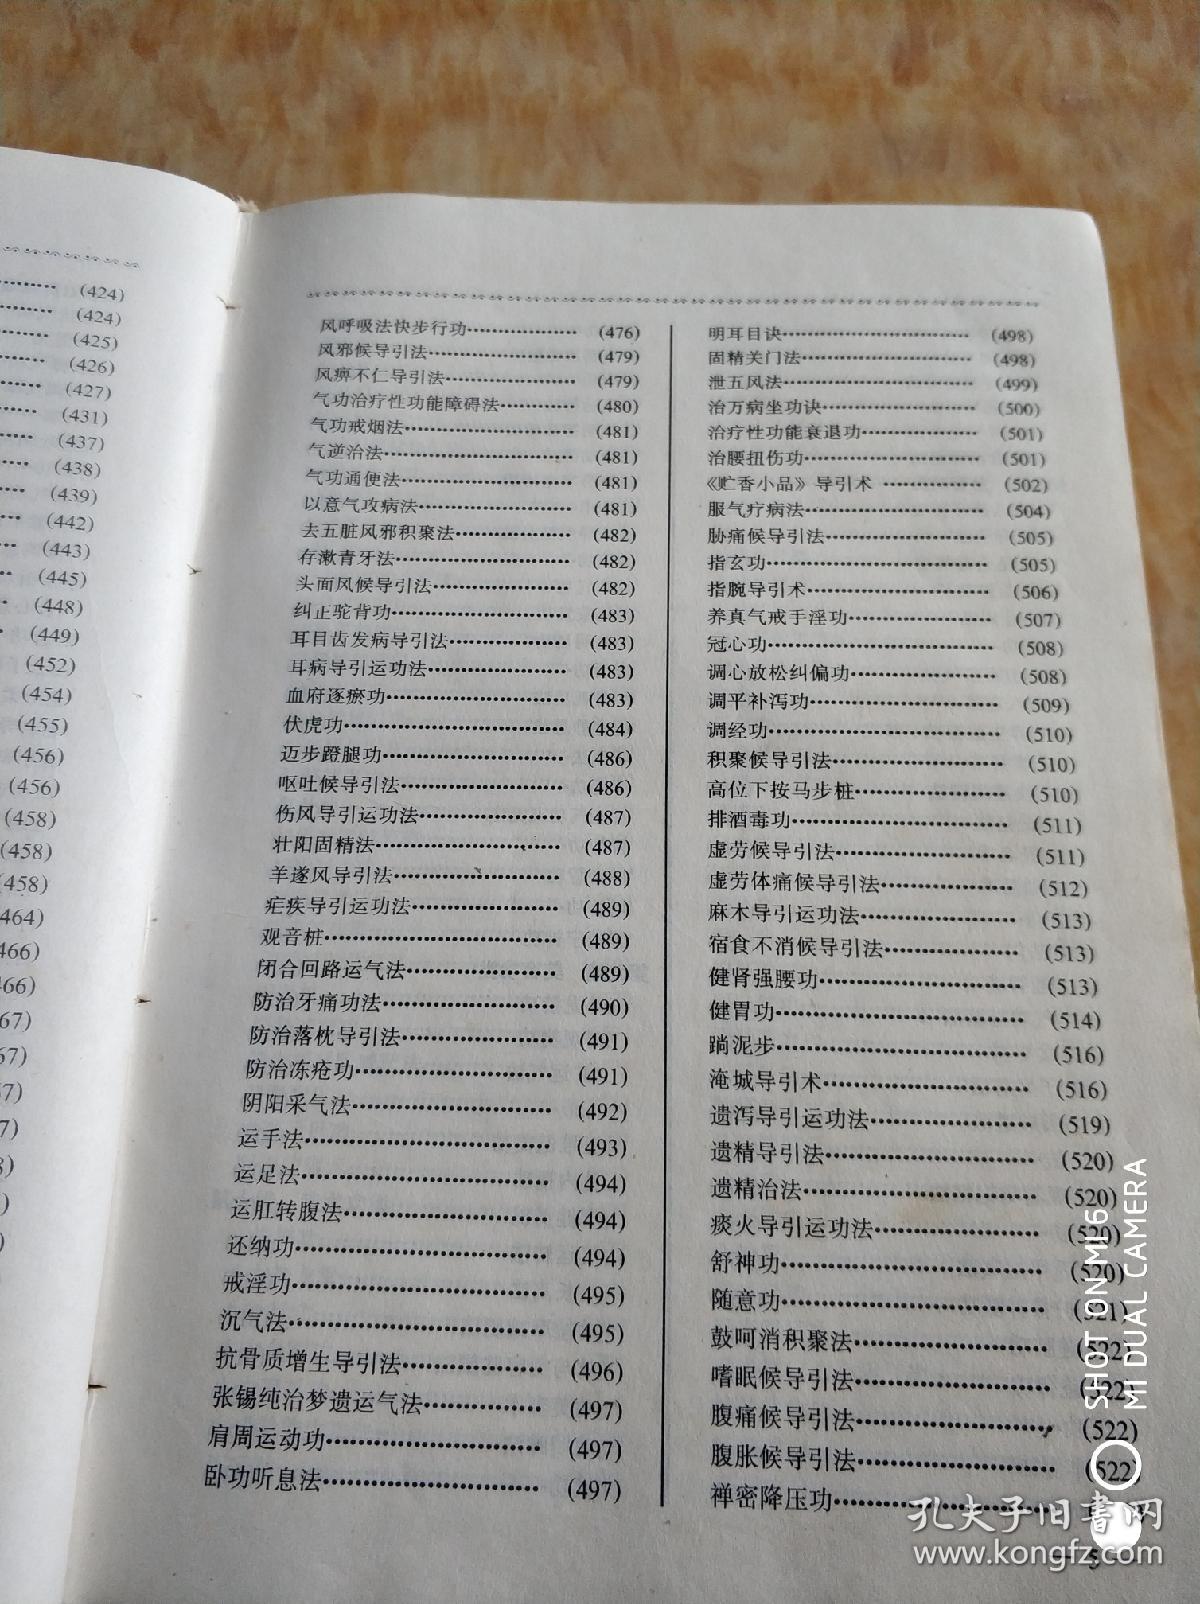 (424)
(424)
(425)
(426)
(427)
(431)
(437)
(438)
(439)
(442)
(443)
(445)
(448)
(449)
(452)
(454)
(455)
(456)
(456)
(458)
(458)
458)
464)
466)
466)
67)
67)
7)
7)
)
)
风呼吸法快步行功……………… (476)
风邪候导引法……………… (479)
风痹不仁导引法……………… (479)
气功治疗性功能障碍法……………… (480)
气功戒烟法……………… (481)
气逆治法……………… (481)
气功通便法……………… (481)
以意气攻病法……………… (481)
去五脏风邪积聚法……………… (482)
存漱青牙法……………… (482)
头面风候导引法……………… (482)
纠正驼背功……………… (483)
耳目齿发病导引法……………… (483)
耳病导引运功法……………… (483)
血府逐瘀功……………… (483)
伏虎功……………… (484)
迈步蹬腿功……………… (486)
呕吐候导引法……………… (486)
伤风导引运功法……………… (487)
壮阳固精法……………… (487)
羊遂风导引法……………… (488)
疟疾导引运功法……………… (489)
观音桩……………… (489)
闭合回路运气法……………… (489)
防治牙痛功法……………… (490)
防治落枕导引法……………… (491)
防治冻疮功……………… (491)
阴阳采气法……………… (492)
运手法……………… (493)
运足法……………… (494)
运肛转腹法……………… (494)
还纳功……………… (494)
戒淫功……………… (495)
沉气法……………… (495)
抗骨质增生导引法……………… (496)
张锡纯治梦遗运气法……………… (497)
肩周运动功……………… (497)
卧功听息法……………… (497)
明耳目诀……………… (498)
固精关门法……………… (498)
泄五风法……………… (499)
治万病坐功诀……………… (500)
治疗性功能衰退功……………… (501)
治腰扭伤功……………… (501)
《贮香小品》导引术……………… (502)
服气疗病法……………… (504)
胁痛候导引法……………… (505)
指玄功……………… (505)
指腕导引术……………… (506)
养真气戒手淫功……………… (507)
冠心功……………… (508)
调心放松纠偏功……………… (508)
调平补泻功……………… (509)
调经功……………… (510)
积聚候导引法……………… (510)
高位下按马步桩……………… (510)
排酒毒功……………… (511)
虚劳候导引法……………… (511)
虚劳体痛候导引法……………… (512)
麻木导引运功法……………… (513)
宿食不消候导引法……………… (513)
健肾强腰功……………… (513)
健胃功……………… (514)
趟泥步……………… (516)
淹城导引术……………… (516)
遗泻导引运功法……………… (519)
遗精导引法……………… (520)
遗精治法……………… (520)
痰火导引运功法……………… (520)
舒神功……………… (520)
随意功……………… (521)
鼓呵消积聚法……………… (522)
嗜眠候导引法……………… (522)
腹痛候导引法……………… (522)
腹胀候导引法……………… (522)
禅密降压功………………
5
SHOT ON MI 6
MI DUAL CAMERA
孔夫子旧书网
www.kongfz.com